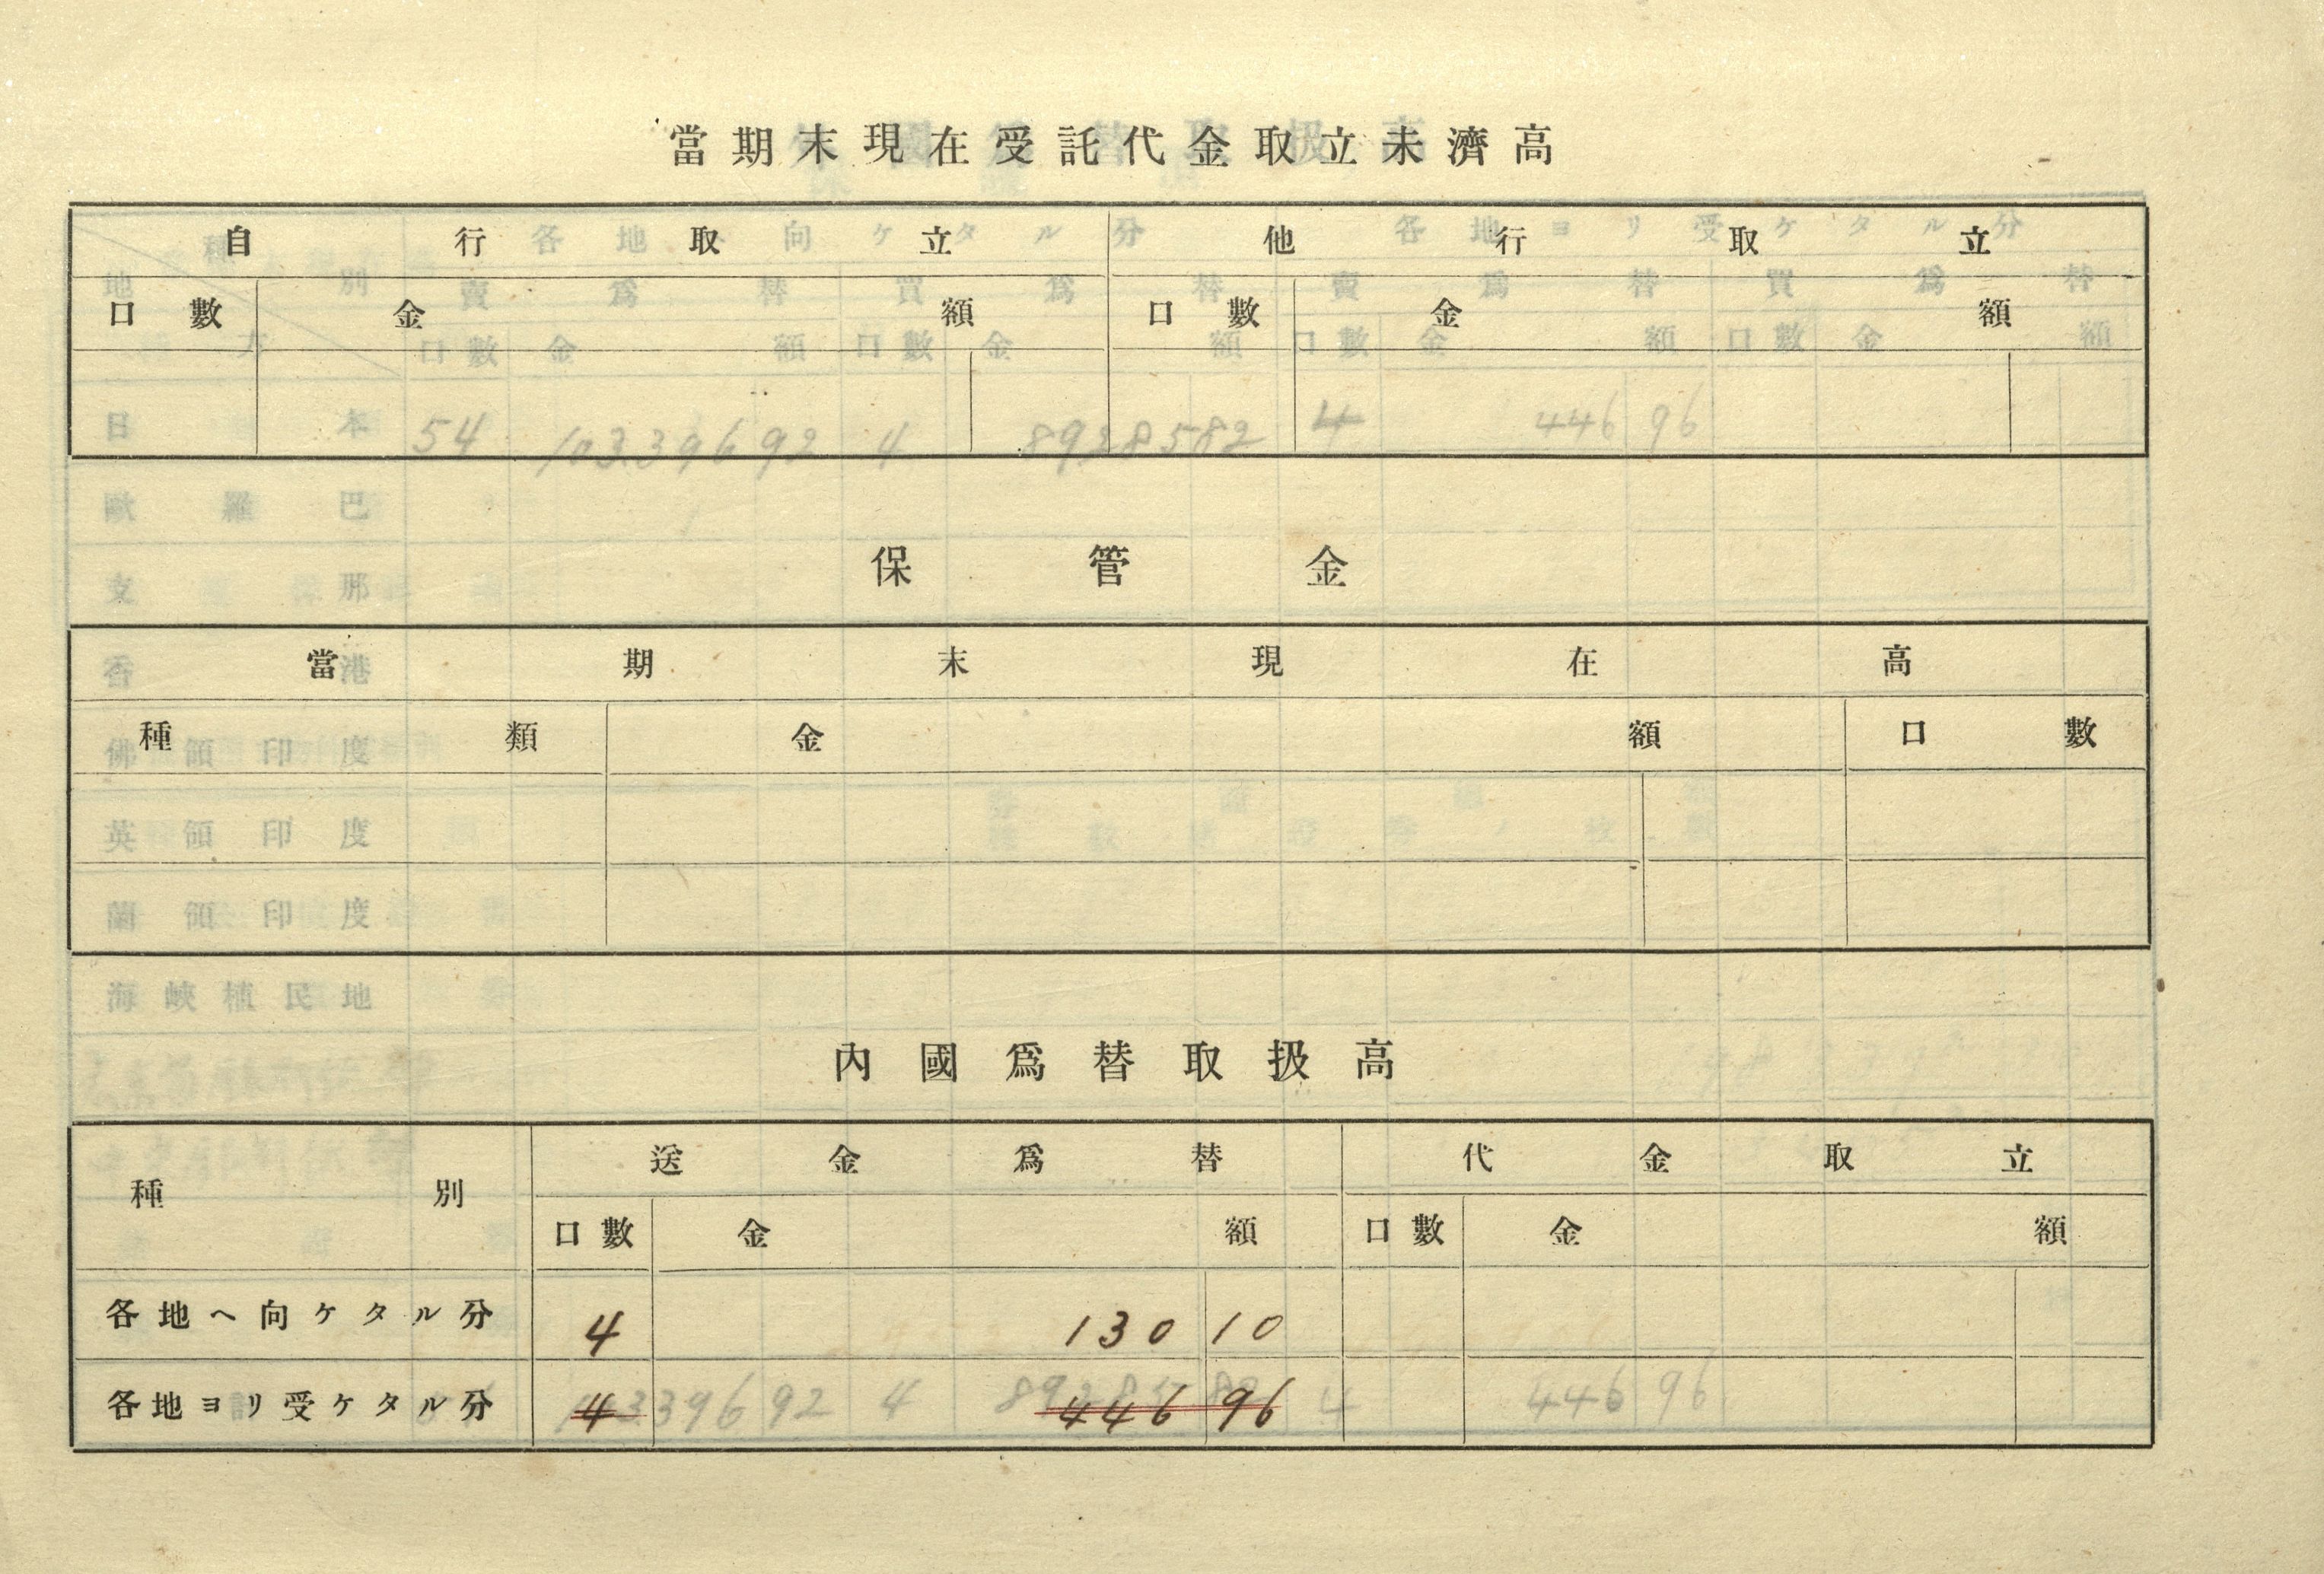 當期末現在受託代金取立未濟高
自行取立 他行取立
口數 金額 口數 金額
保管金
當期末現在高
種類 金額 口數
內國爲替取扱高
種別 送金爲替 代金取立
口數 金額 口數 金額
各地ヘ向ケタル分 4 130 10
各地ヨリ受ケタル分 4 446 96